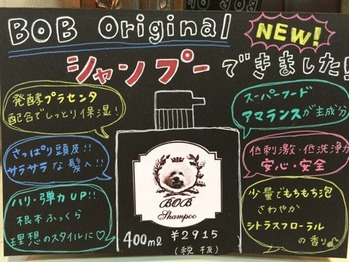 BOB Original NEW!
シャンプーできました!
発酵プラセンタ
配合でしっとり保湿!
さっぱり頭皮!!
サラサラな髪へ!!
ハリ・弾力UP!!
根本ふっくら
理想のスタイルに♡
BOB
Shampoo
400ml ¥2915
(税抜)
スーパーフード
アマランスが主成分
低刺激・低洗浄
安心・安全
少量でもちもち泡
さわやか
シトラスフローラル
の香り